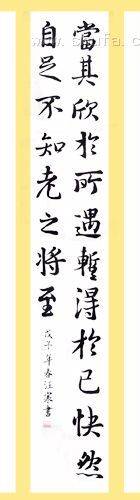 當其欣於所遇暫得於己快然
自足不知老之將至
戊子年春汪寒書